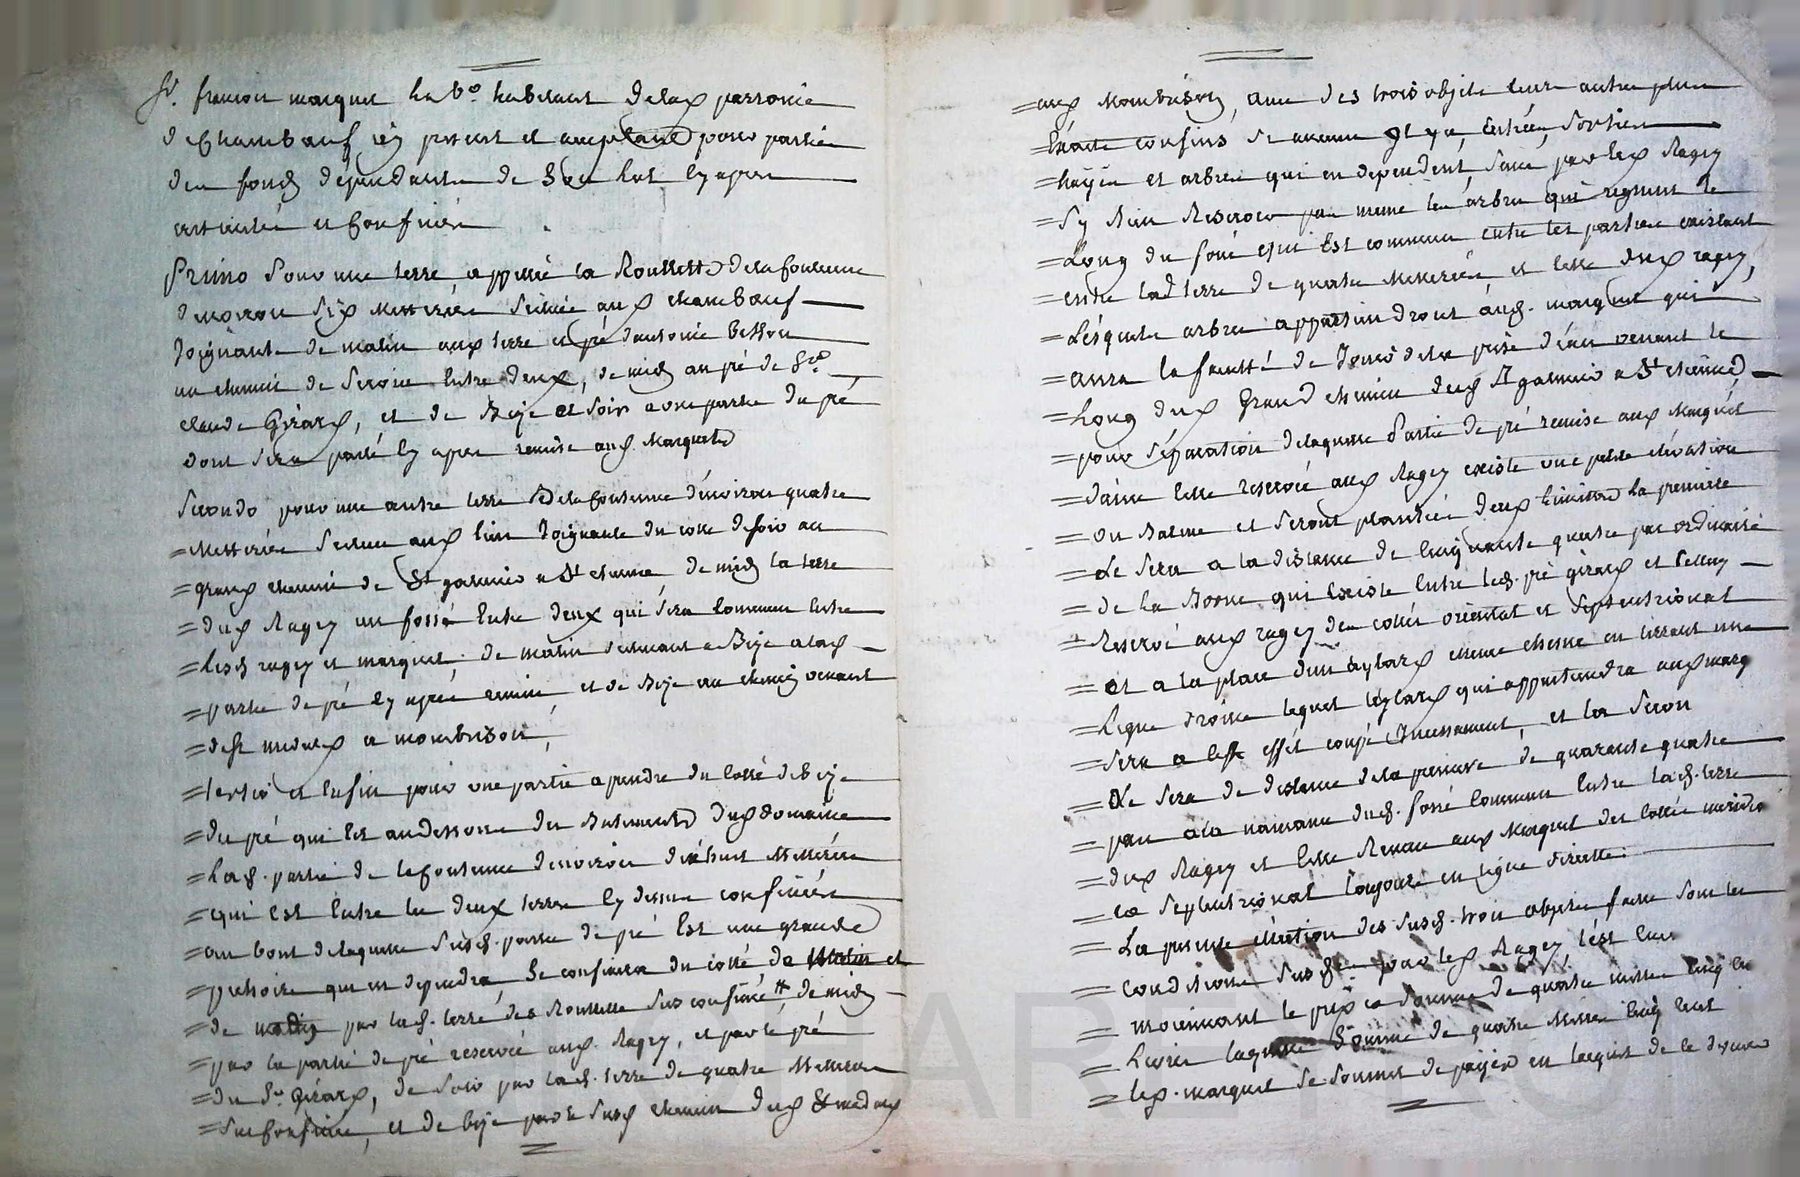 Sr. francois marquet habitant de lad parroisse
de Chambeuf icy present et acceptant pour partie
des fonds dependants de Son lot cy apres
articulés et Confinés
Primo pour une terre appellée la Roussette de la Contenue
denviron Six Metterées Scituée aud chambeuf
Joignante de matin aux terre et pré dantoine besson
un chemin de Service Entre deux, de midy au pré de Sr.
claude Girard, et de Bize et Soir a une partie du pré
dont Sera parlé Cy apres remise aud Marquet
Secondo pour une autre terre De la Contenue d'environ quatre
Metterées Scituée aud lieu Joignante du cotté de Soir au
grand chemin de St galmier a St etienne de midy la terre
dud Ragey un fossé Entre deux qui Sera Commun Entre
lesd ragey et marquet. de matin et Bize a lad
partie de pré Cy après remise, et de Bize au chemin venant
de St medard a montbrison,
tertio et Enfin pour une partie a prendre du Cotté de bize
du pré qui Est au dessous des Batiments dud domaine
Lad. partie de la Contenue denviron dix huit Metterées
qui est Entre les deux terres Cy dessus confinées
au bout de laquelle Susd. partie de pré Est une grande
qui en dependra Se confinera du cotté de Matin et
de midy par lad. terre des Roussette Sus confinée de midy
par la partie de pré reservée aud. Ragey, et par le pré
du Sr. Girard, de Soir par lad. terre de quatre Metterées
Sus Confinée, et de bize par le Susd chemin dud St medard
aud Montbrison, avec des trois objets leurs autres plus
Exacts confins, Se aucuns y a, Entrées, Sorties
hayes et arbres qui en dependent, Sans par led Ragey
Sy Rien Reserver pas meme les arbres qui regnent le
Long du fossé qui Est commun entre les parties existant
entre lad terre de quatre Metterées et Celle dud ragey,
Lesquels arbres appartiendront aud. marquet qui
aura la faculté de Jouir de la prise d'eau venant le
Long dud Grand chemin dud St galmier a St etienne
pour Séparation de laquelle Partie de pré remise aud Marquet
davec Celle reservée aud Ragey existe une petite élévation
ou Balme et Seront plantées deux limittes la premiere
de Sera a la distance de Cinquante quatre pas ordinaires
de la Borne qui Existe Entre led. pré girard et Celluy
Reservé aud ragey des cottés oriental et Septentrional
et a la place d'un chesne en tirrant une
Ligne droitte lequel qui appartiendra aud marq
Sera a cest effet coupé Incessamment, et la Secon
de Sera de distance de la premiere de quarante quatre
pas a la naissance dud. fossé Commun Entre lad. terre
dud Ragey et Celle Remise aud Marquet des Cottés meridio
et Septentrional toujours en ligne directte:
La presente élection des Susd. trois objets faitte Sous les
conditions Susd par led Ragey, C'est Encor
moienant le prix et Somme de quatre mille Cinq Cen
Livres laquelle Somme de quatre Mille Cinq Cent
led. marquet Se Soumet de payer en lacquit de le